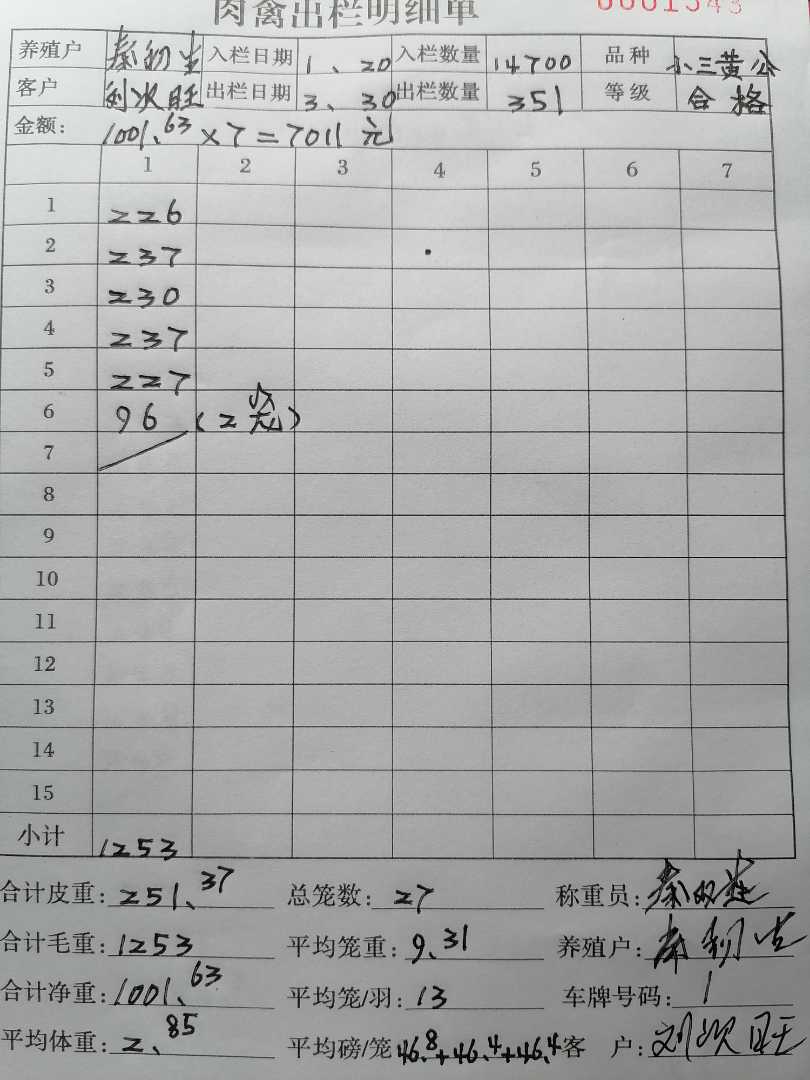 肉禽出栏明细单 0001543
养殖户 秦初生 入栏日期 1、20 入栏数量 14700 品种 小三黄公
客户 刘次旺 出栏日期 3、30 出栏数量 351 等级 合格
金额: 1001.63×7=7011元
1 2 3 4 5 6 7
1 226
2 237
3 230
4 237
5 227
6 96 (2笼)
7
8
9
10
11
12
13
14
15
小计 1253
合计皮重: 251、37 总笼数: 27 称重员:
合计毛重: 1253 平均笼重: 9、31 养殖户: 秦初生
合计净重: 1001、63 平均笼/羽: 13 车牌号码: 1
平均体重: 2、85 平均磅/笼 46.8+46.4+46.4 客 户: 刘次旺